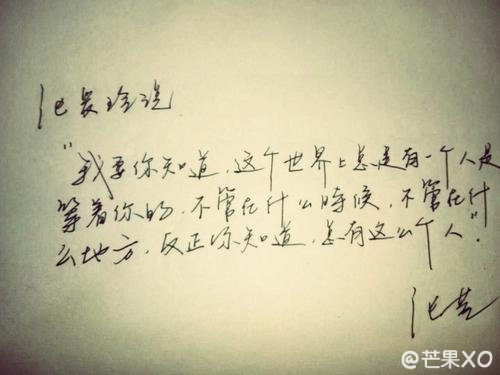 说
"我要你知道,这个世界上总是有一个人是
等着你的,不管在什么時候,不管在什
么地方,反正你知道,总有这么个人".
@芒果XO